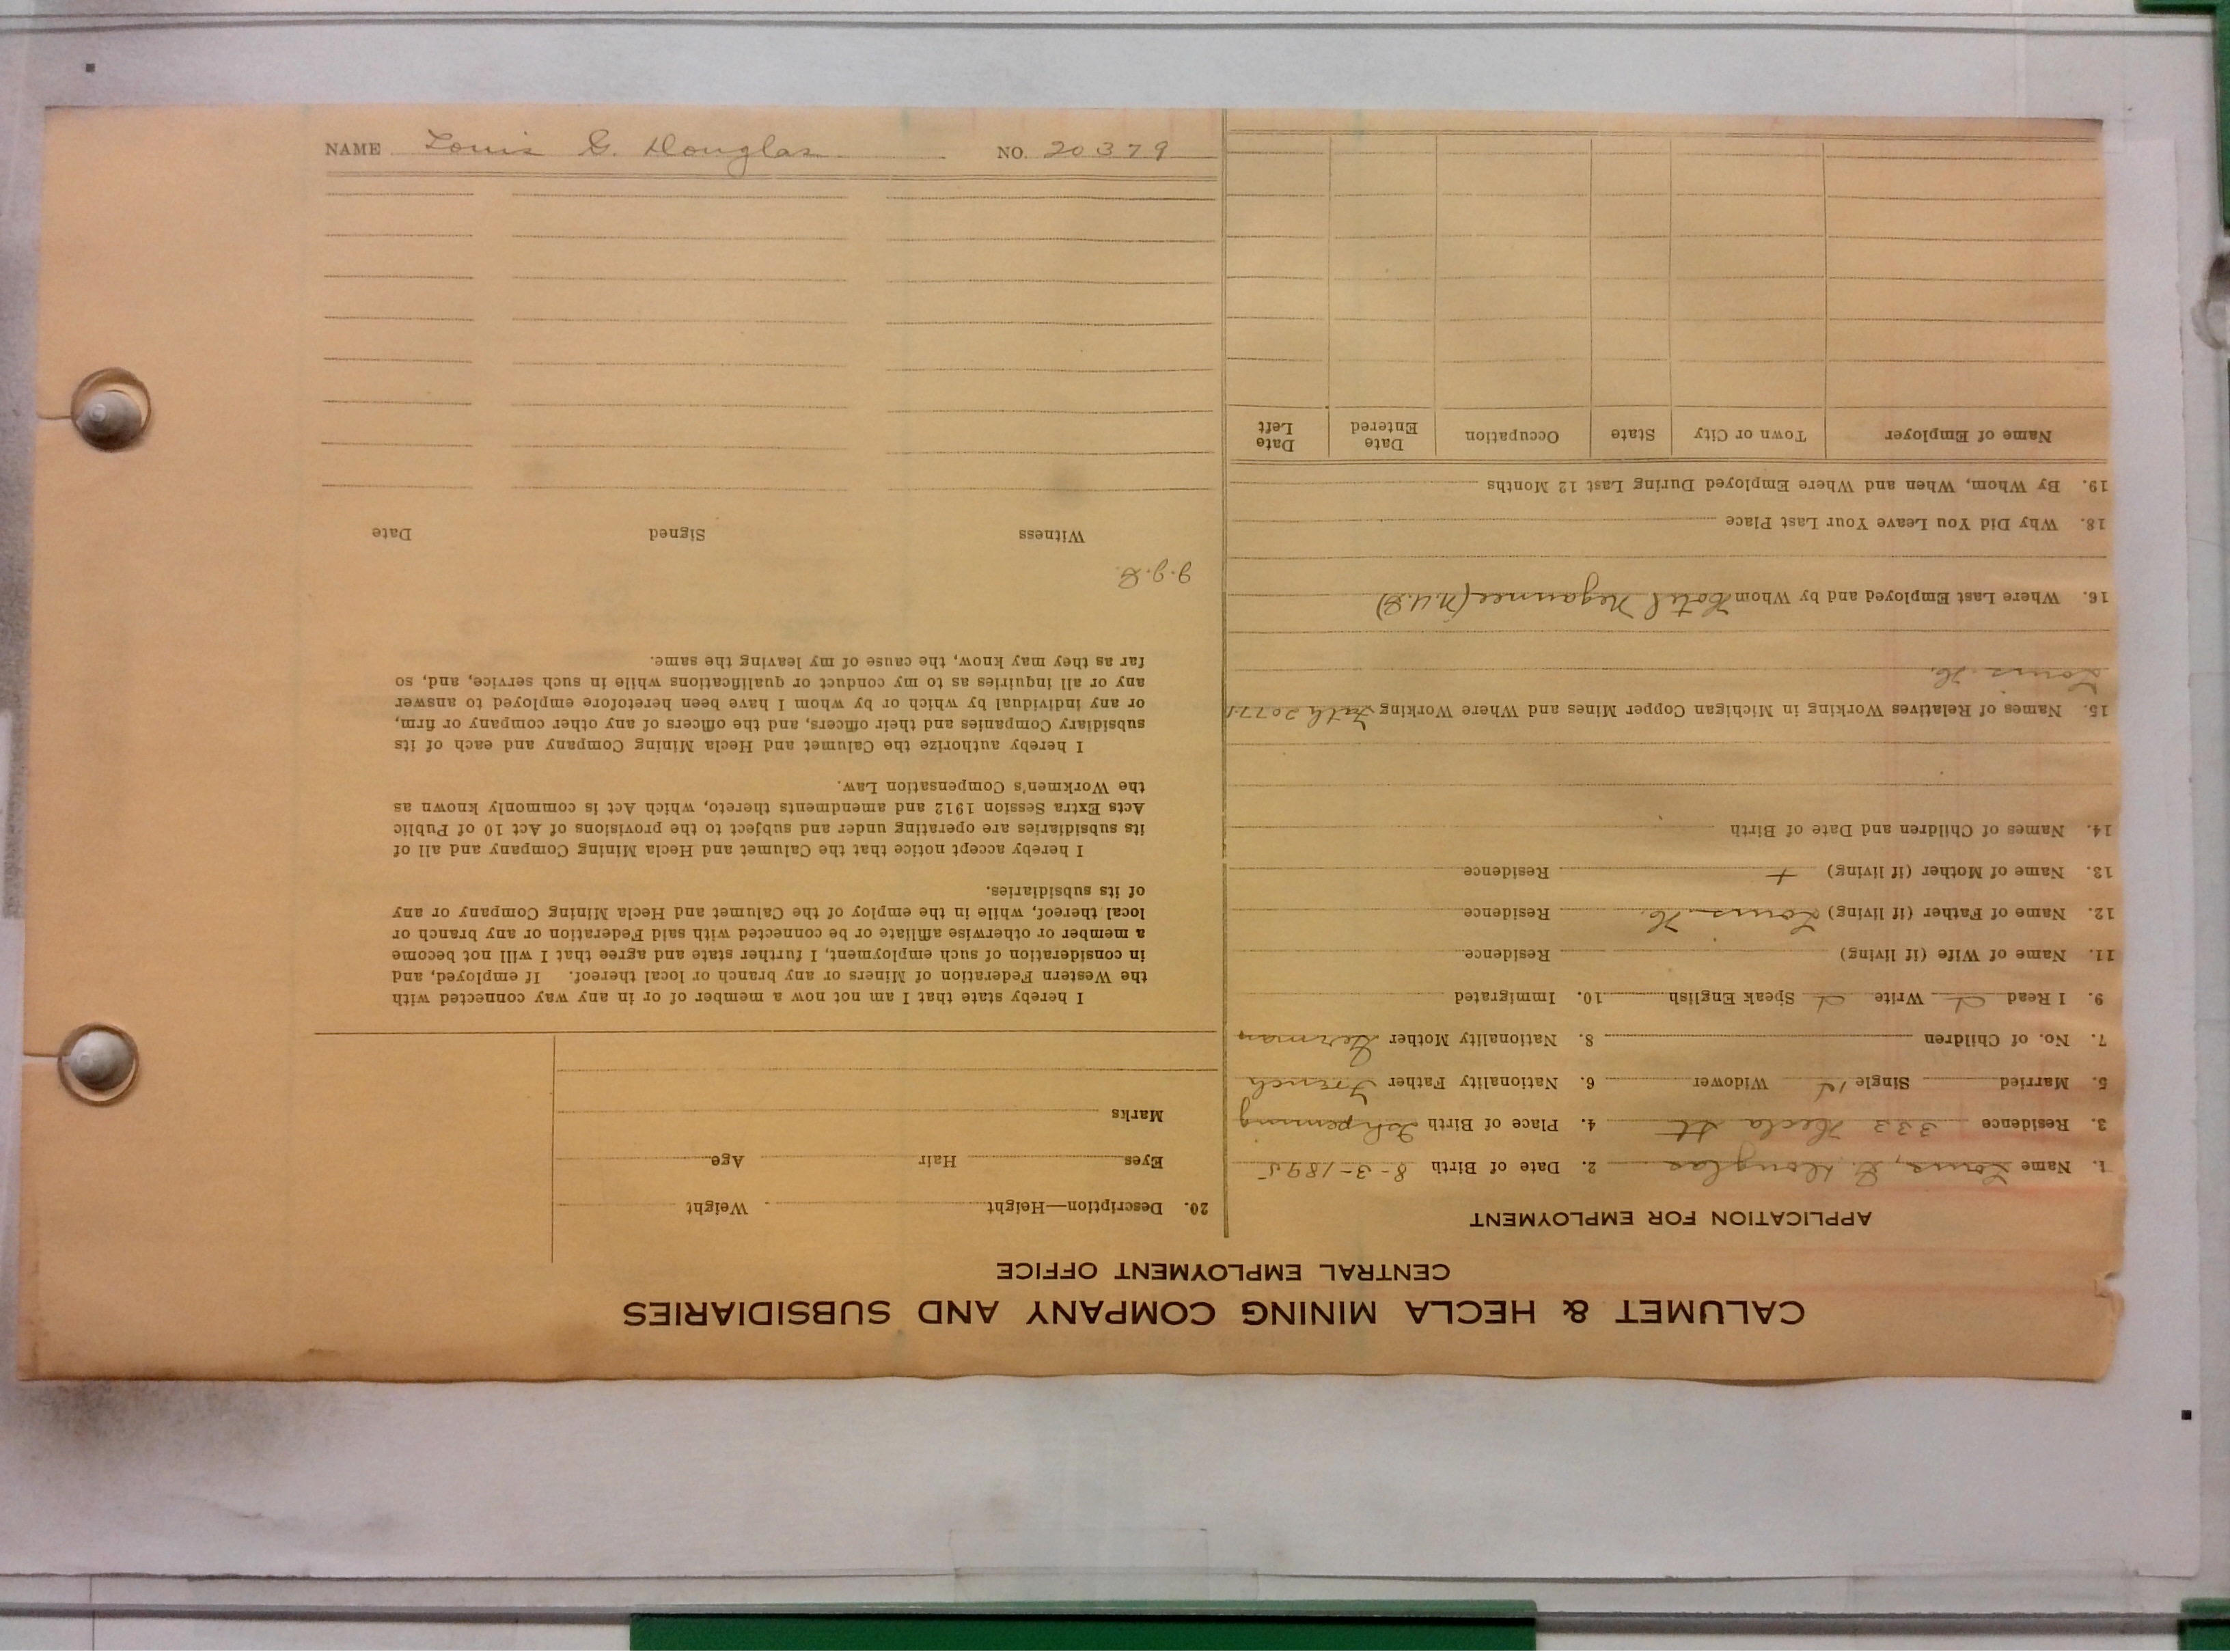 CALUMET & HECLA MINING COMPANY AND SUBSIDIARIES
CENTRAL EMPLOYMENT OFFICE
APPLICATION FOR EMPLOYMENT
1. Name Louis, G. Douglas 2. Date of Birth 8-3-1895
3. Residence 333 Hecla St 4. Place of Birth Ishpeming
5. Married Single Widower 6. Nationality Father French
7. No. of Children 8. Nationality Mother German
9. I Read Write Speak English 10. Immigrated
11. Name of Wife (if living) Residence
12. Name of Father (if living) Louis H. Residence
13. Name of Mother (if living) + Residence
14. Names of Children and Date of Birth
15. Names of Relatives Working in Michigan Copper Mines and Where Working Fath 20771
Louis H.
16. Where Last Employed and by Whom Hotel Negaunee
18. Why Did You Leave Your Last Place
19. By Whom, When and Where Employed During Last 12 Months
Name of Employer Town or City State Occupation Date Entered Date Left
20. Description—Height Weight
Eyes Hair Age
Marks
I hereby state that I am not now a member of or in any way connected with
the Western Federation of Miners or any branch or local thereof. If employed, and
in consideration of such employment, I further state and agree that I will not become
a member or otherwise affiliate or be connected with said Federation or any branch or
local thereof, while in the employ of the Calumet and Hecla Mining Company or any
of its subsidiaries.
I hereby accept notice that the Calumet and Hecla Mining Company and all of
its subsidiaries are operating under and subject to the provisions of Act 10 of Public
Acts Extra Session 1912 and amendments thereto, which Act is commonly known as
the Workmen's Compensation Law.
I hereby authorize the Calumet and Hecla Mining Company and each of its
subsidiary Companies and their officers, and the officers of any other company or firm,
or any individual by which or by whom I have been heretofore employed to answer
any or all inquiries as to my conduct or qualifications while in such service, and, so
far as they may know, the cause of my leaving the same.
Witness Signed Date
NAME Louis G. Douglas NO. 20379